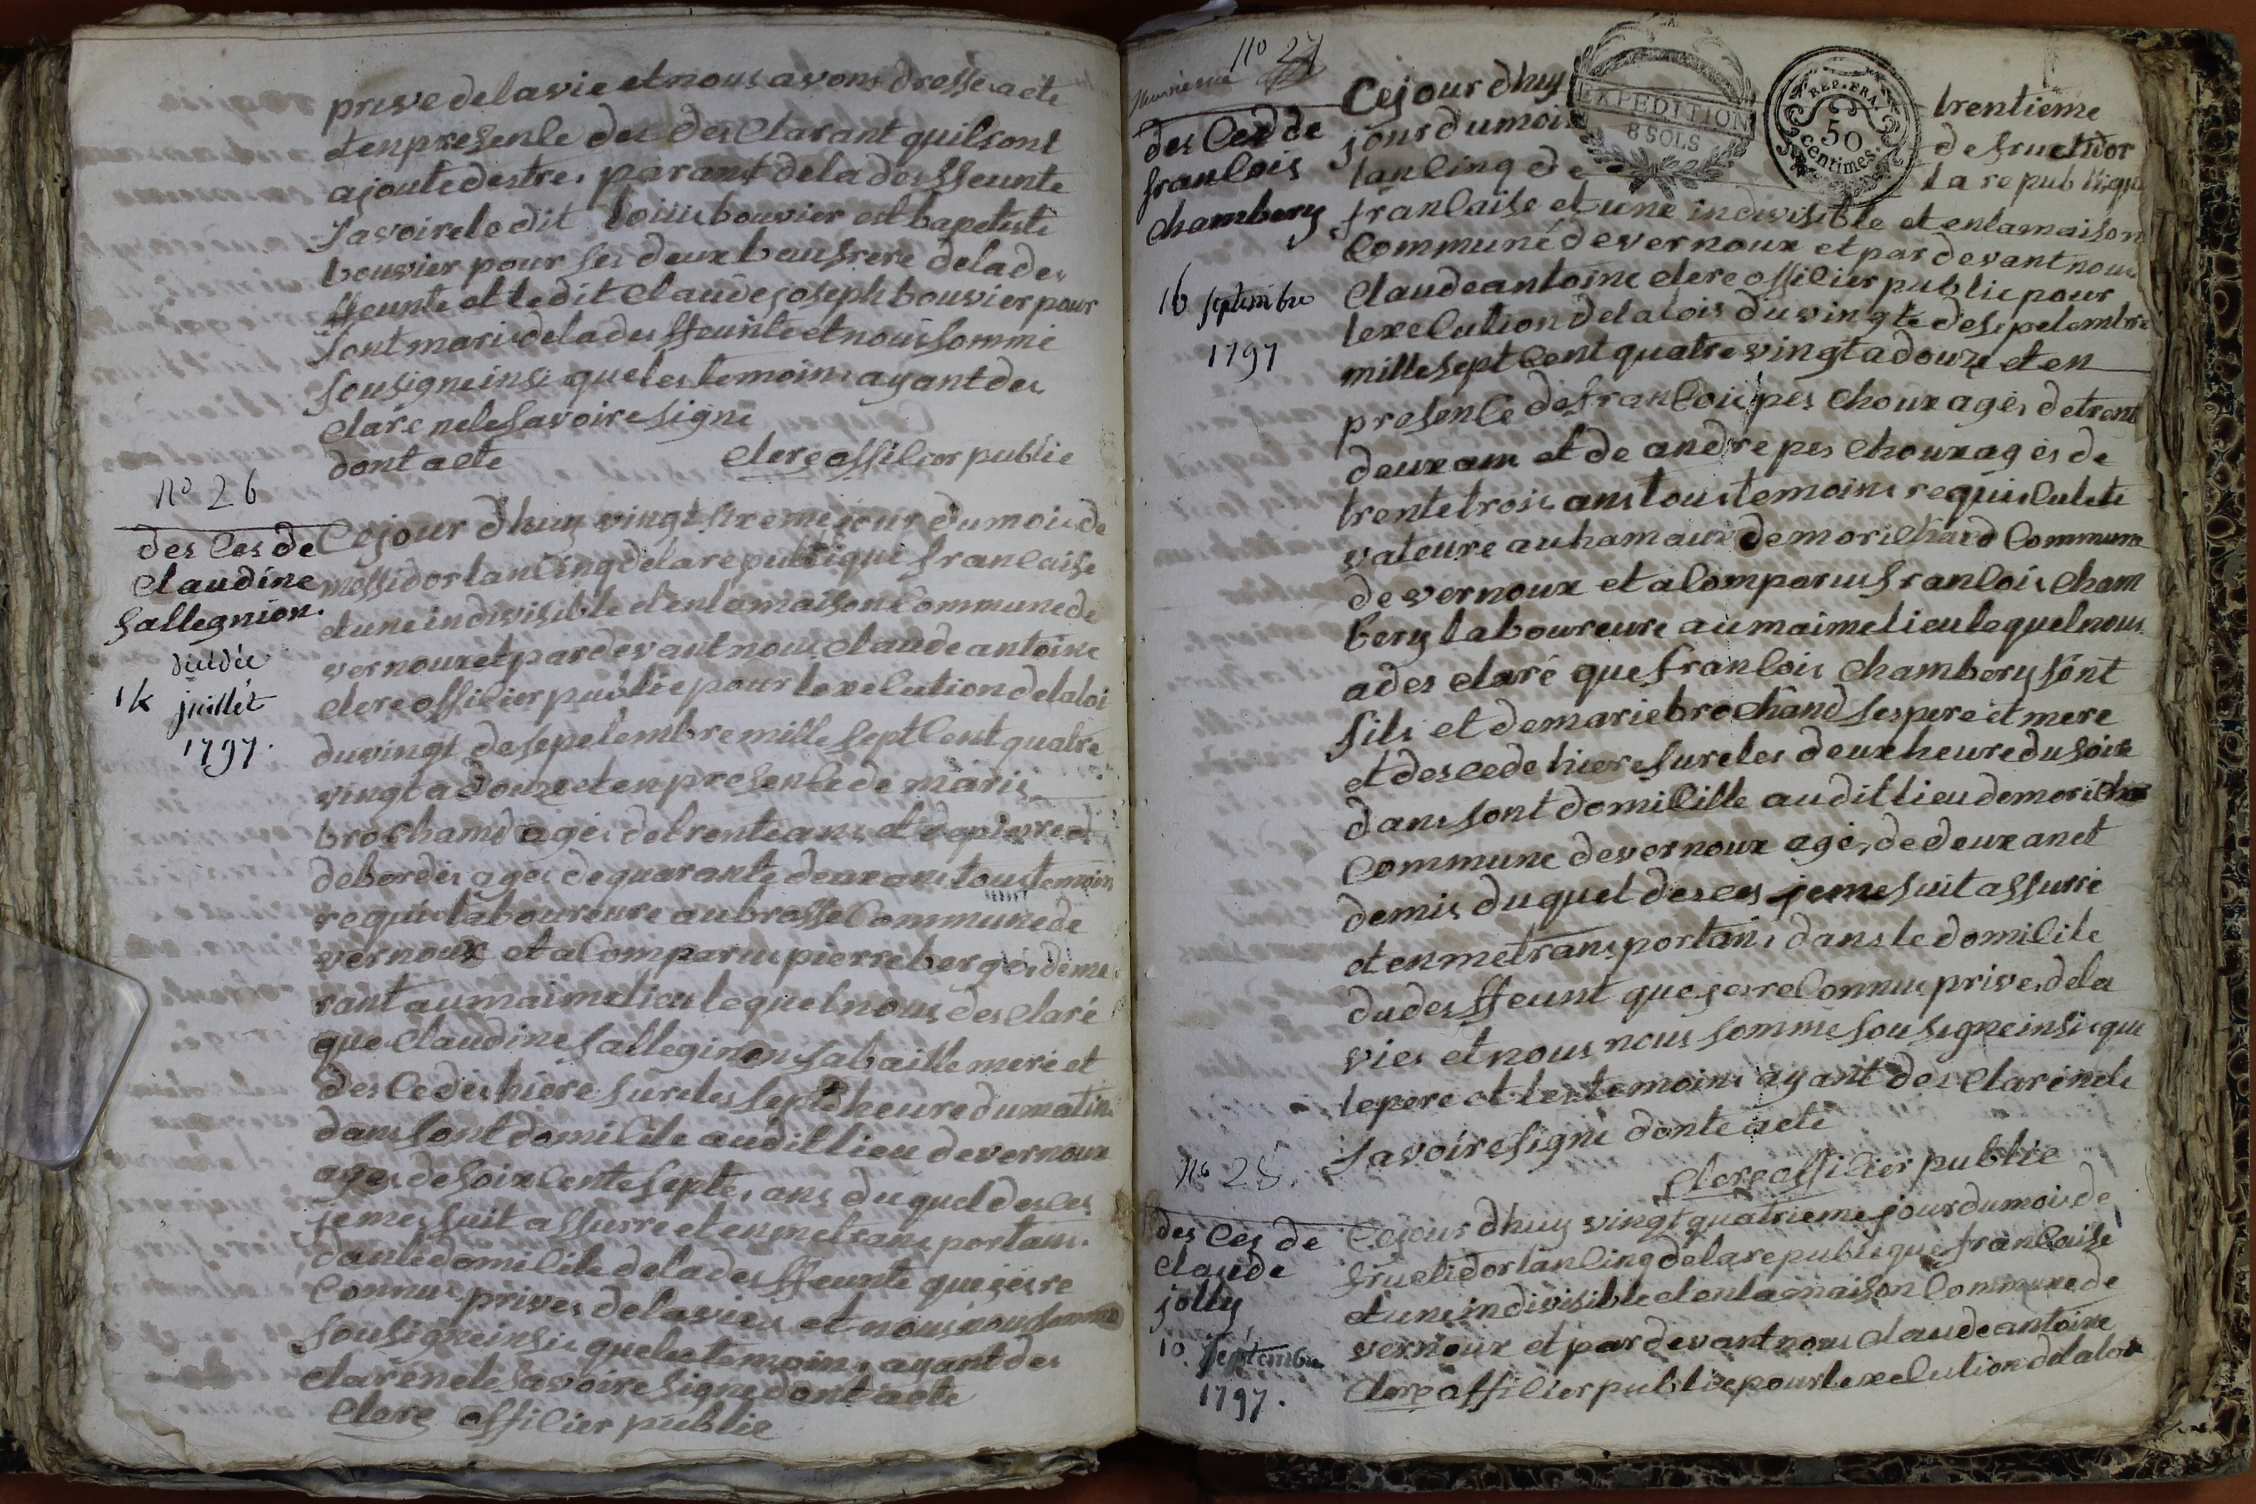 prive de la vie et nous avons drosse acte
et en presenle des des Clarant quil sont
ajoute destres parant de la desffeunte
savoire le dit louis bouvier est bapetiste
bouvier pour ses deux beaufrere de la des
ffeunte et le dit Claude joseph bouvier pour
sont marie de la des ffeunte et nous somme
sousigne insi que les temoins ayant des
Claré ne le savoire signe
dont acte Clerc offilier publie
No 26
des Ces de
Claudine
Sallegnion.
14 juillet
1797.
Ce jour dhuy vingt sixeme jour du mois de
messidor lan Cinq de la republique franlaise
et une indivisible et en la maison Commune de
vernoux et par devant nous Claude antoine
Clerc offilier publie pour lexelution de la loi
du vingt de sepetembre mille sept Cent quatre
vingt a douze et en presenle de marie
brochamd ages de trente ans et de pierre
debordes ages de quarante deux ans tous temoins
requis laboureure au brosse Commune de
vernoux et a Comparue pierre berges deme
rant au maime lieu lequel nous des Claré
que Claudine Salleginon sa baille mere et
des Cedes hiere sure les sept heure du matin
dans sont domilile au dit lieu de vernoux
ages de soix Cente septes ans du quel des ces
je mes suit assurre et en me trans portans
dans le domilile de la des ffeunte que jes re
Connue prives de la vies et nous nous somme
sousigne insi que les temoins ayant des
Claré ne le savoire signe dont acte
Clerc offilier publie
No 27
des Ces de
franlois
Chambery
16 septembre
1797
Ce jour dhuy trentieme
jour du mois de fructidor
lan Cinq de la republique
EXPEDITION
8 SOLS
REP. FRA.
50
centimes.
franlaise et une indivisible et en la maison
Commune de vernoux et par devant nous
Claude antoine Clerc offilier publie pour
lexelution de la lois du vingte de sepetembre
mille sept Cent quatre vingt a douze et en
presenle de franlois pes Choux ages de trent
deux ans et de andre pes Choux ages de
trente trois ans tous temoins requis Culete
vateure au hamaux de morilhard Commune
de vernoux et a Comparue franlois Cham
bery laboureure au maime lieu lequel nous
a des Claré que franlois Chambery sont
fils et de marie brochand ses pere et mere
et des cede hiere sure les deux heure du soire
dans sont domilille au dit lieu de morilha
Commune de vernoux ages de deux an et
demis du quel des ces je me suit assurré
et en me trans portans dans le domilile
du des ffeunt que jes re Connue prives de la
vies et nous nous somme sousigne insi que
le pere et les temoins ayant des Claré ne le
savoire signe donte acte
Clerc offilier publie
No 28.
des Ces de
Claude
jolly
10 septembre
1797.
Ce jour dhuy vingt quatrieme jour du mois de
fructidor lan Cinq de la republique franlaise
et une indivisible et en la maison Commune de
vernoux et par devant nous Claude antoine
Clerc offilier publie pour lexelution de la loi